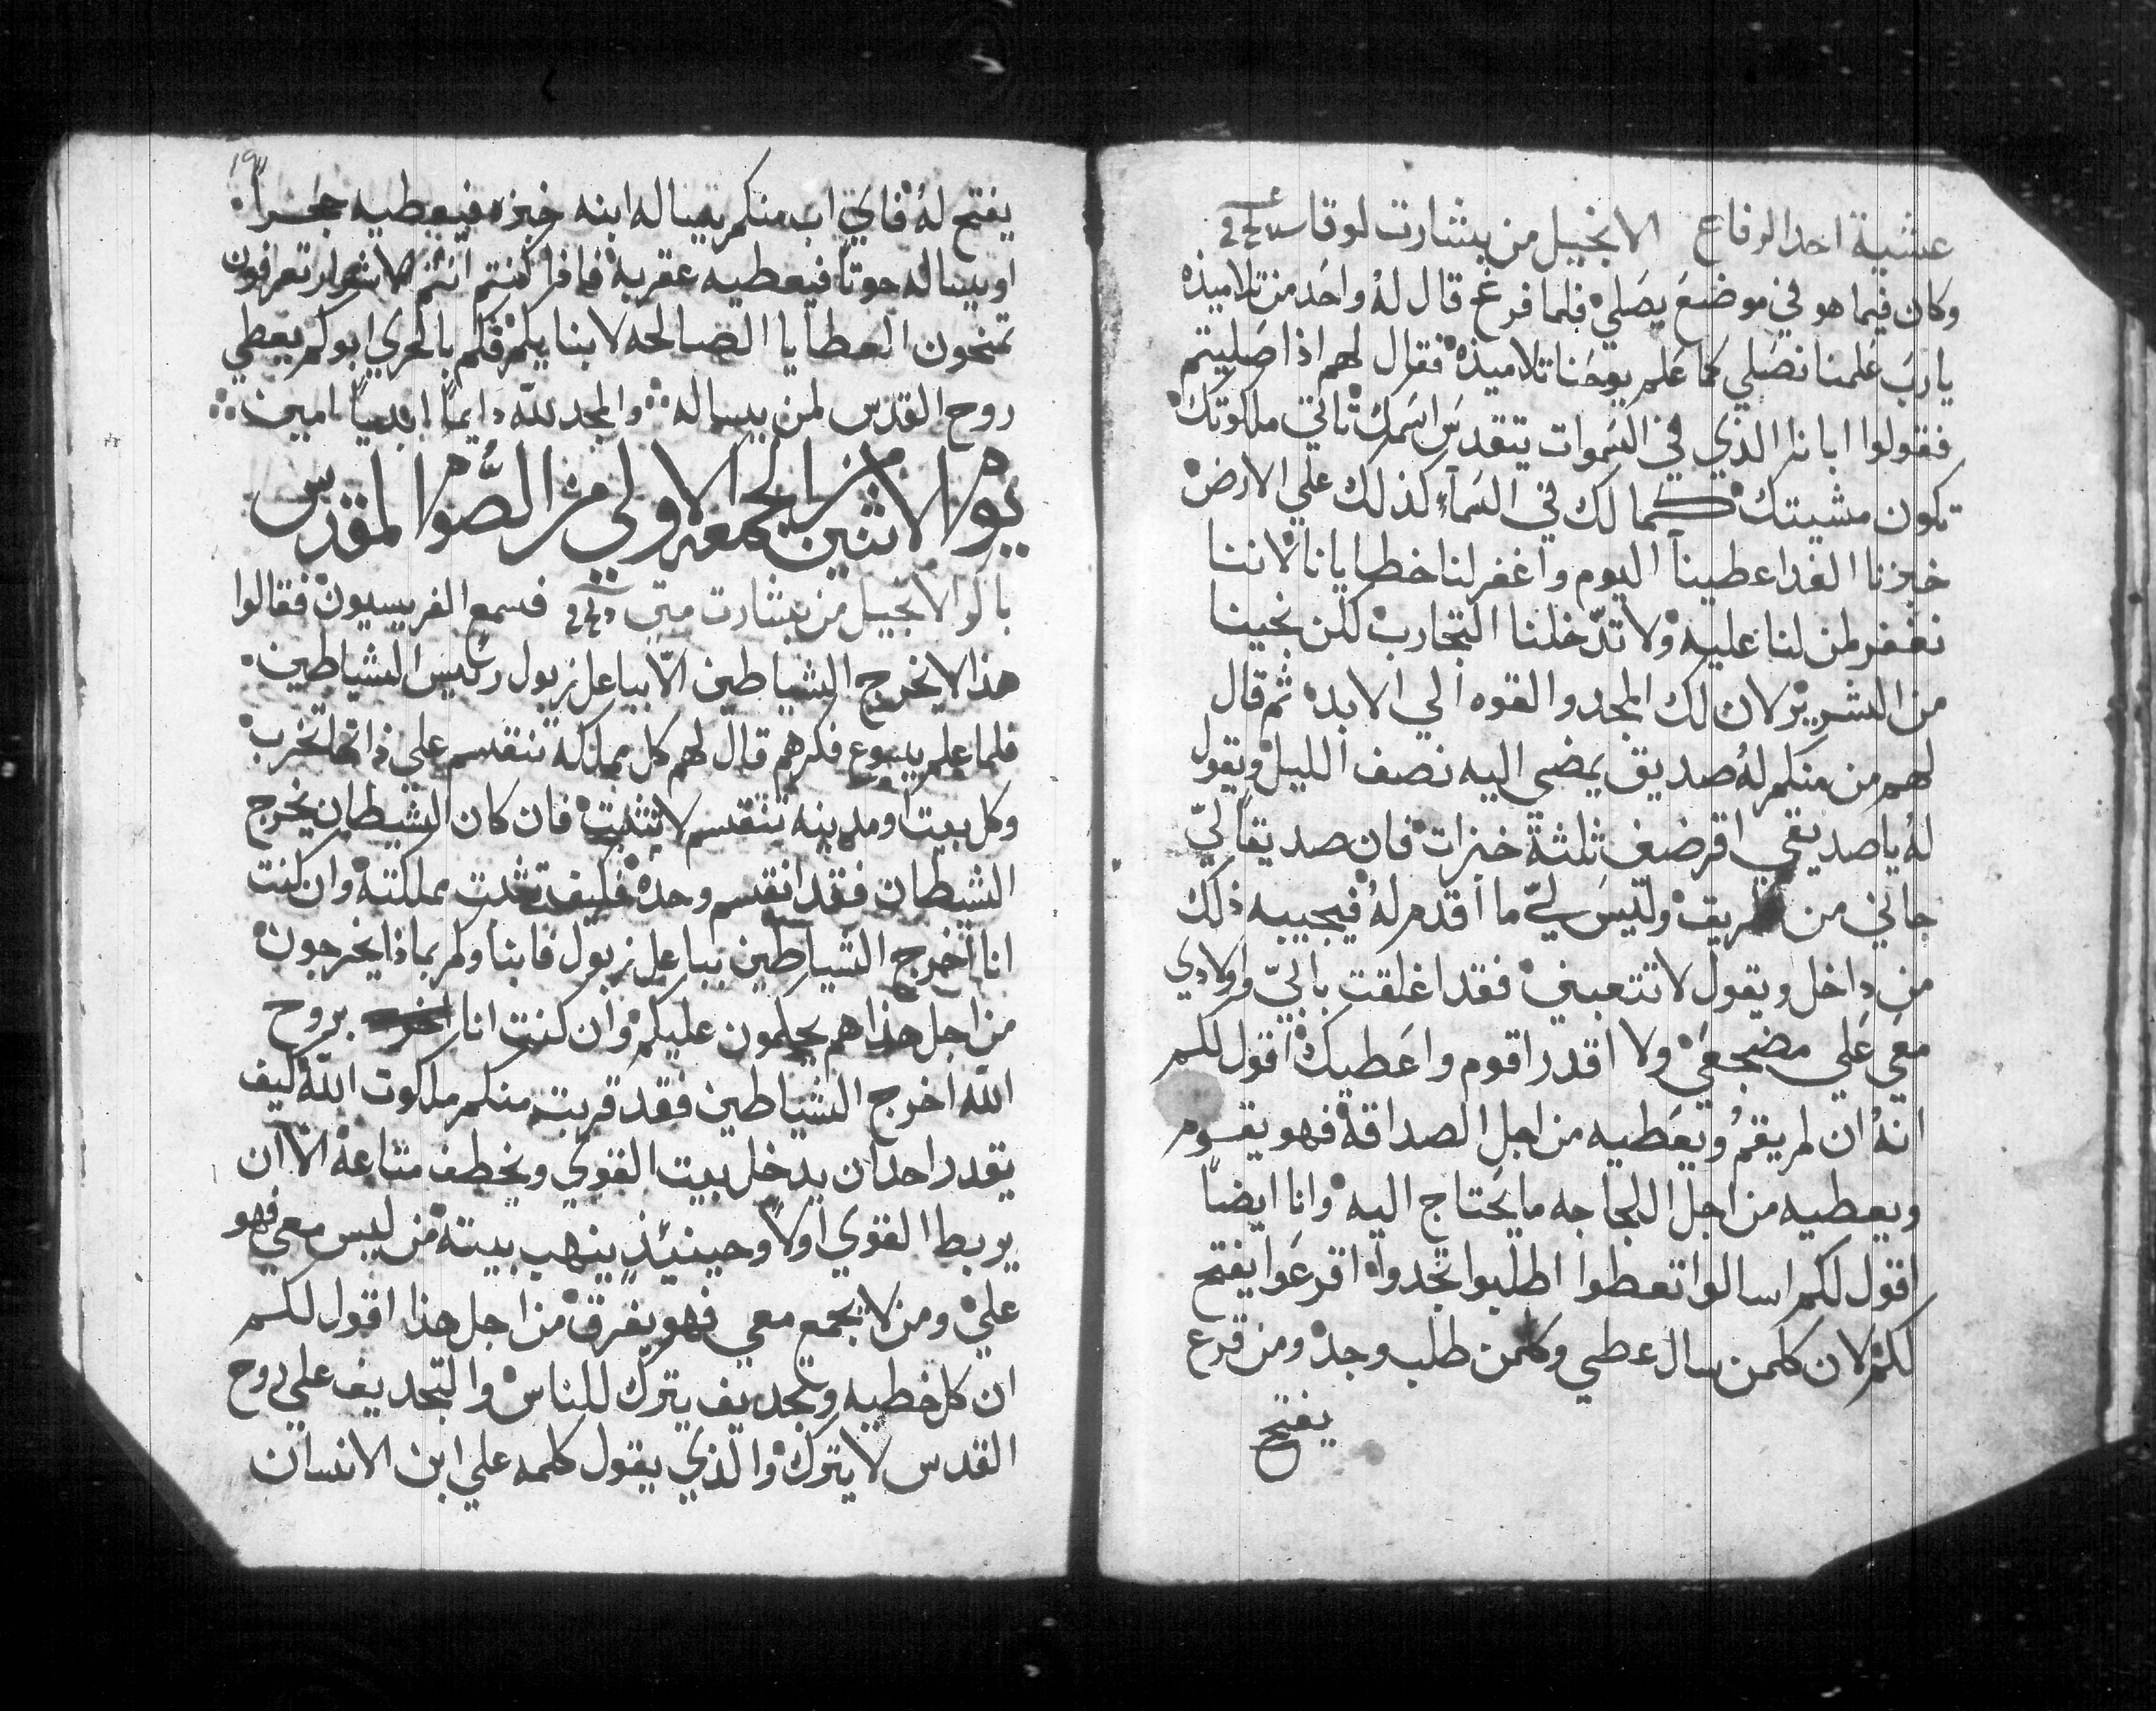 عشية احد الرفاع الانجيل من بشارت لوقا
وكان فيما هو في موضع يصلي فلما فرغ قال له واحد من تلاميذه
يا رب علمنا نصلي كما علم يوحنا تلاميذه فقال لهم اذا صليتم
فقولوا ابانا الذي في السموات يتقدس اسمك تاتي ملكوتك
تكون مشيتك كما لك في السمآء كذلك علي الارض
خبزنا الغد اعطينا اليوم واغفر لنا خطايانا لاننا
نغفر لمن لنا عليه ولا تدخلنا التجارب لكن نجينا
من الشرير لان لك المجد والقوه الي الابد ثم قال
لهم من منكم له صديق يمضي اليه نصف الليل ويقول
له يا صديقي اقرضني ثلثة خبزات فان صديقا لي
جاني من طريق وليس لي ما اقدم له فيجيبه ذلك
من داخل ويقول لا تتعبني فقد اغلقت بابي واولادي
معي علي مضجعي ولا اقدر اقوم واعطيك اقول لكم
انه ان لم يقم ويعطيه من اجل الصداقة فهو يقوم
ويعطيه من اجل اللجاجه ما يحتاج اليه وانا ايضاً
اقول لكم اسالوا تعطوا اطلبوا تجدوا اقرعوا يفتح
لكم لان كلمن سال عطي وكلمن طلب وجد ومن قرع
يفتح
١٩٣
يفتح له فاي اب منكم يساله ابنه خبزه فيعطيه حجراً
او يساله حوتاً فيعطيه عقربه فاذا كنتم انتم الاشرار تعرفون
تمنحون العطايا الصالحه لابنايكم فكم بالحري ابوكم يعطي
روح القدس لمن يساله والمجد لله دايماً ابدياً امين
يوم الاثنين من الجمعه الاولي من الصوم المقدس
باكر الانجيل من بشارت متي فسمع الفريسيون فقالوا
هذا لا يخرج الشياطين الا بباعل زبول رئيس الشياطين
فلما علم يسوع فكرهم قال لهم كل مملكة تنقسم علي ذاتها تخرب
وكل بيت او مدينه تنقسم لا تثبت فان كان الشيطان يخرج
الشيطان فقد انقسم وحده فكيف تثبت مملكته وان كنت
انا اخرج الشياطين بباعل زبول فابناوكم بماذا يخرجون
من اجل هذا هم يحكمون عليكم وان كنت انا بروح
الله اخرج الشياطين فقد قربت منكم ملكوت الله كيف
يقدر احد ان يدخل بيت القوي ويخطف متاعه الا ان
يربط القوي اولاً وحينيئذٍ ينهب بيته من ليس معي فهو
علي ومن لا يجمع معي فهو يفرق من اجل هذا اقول لكم
ان كل خطيه وتجديف يترك للناس والتجديف علي روح
القدس لا يترك والذي يقول كلمه علي ابن الانسان